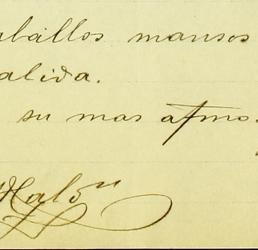 caballos mansos
alida.
su mas afmo.